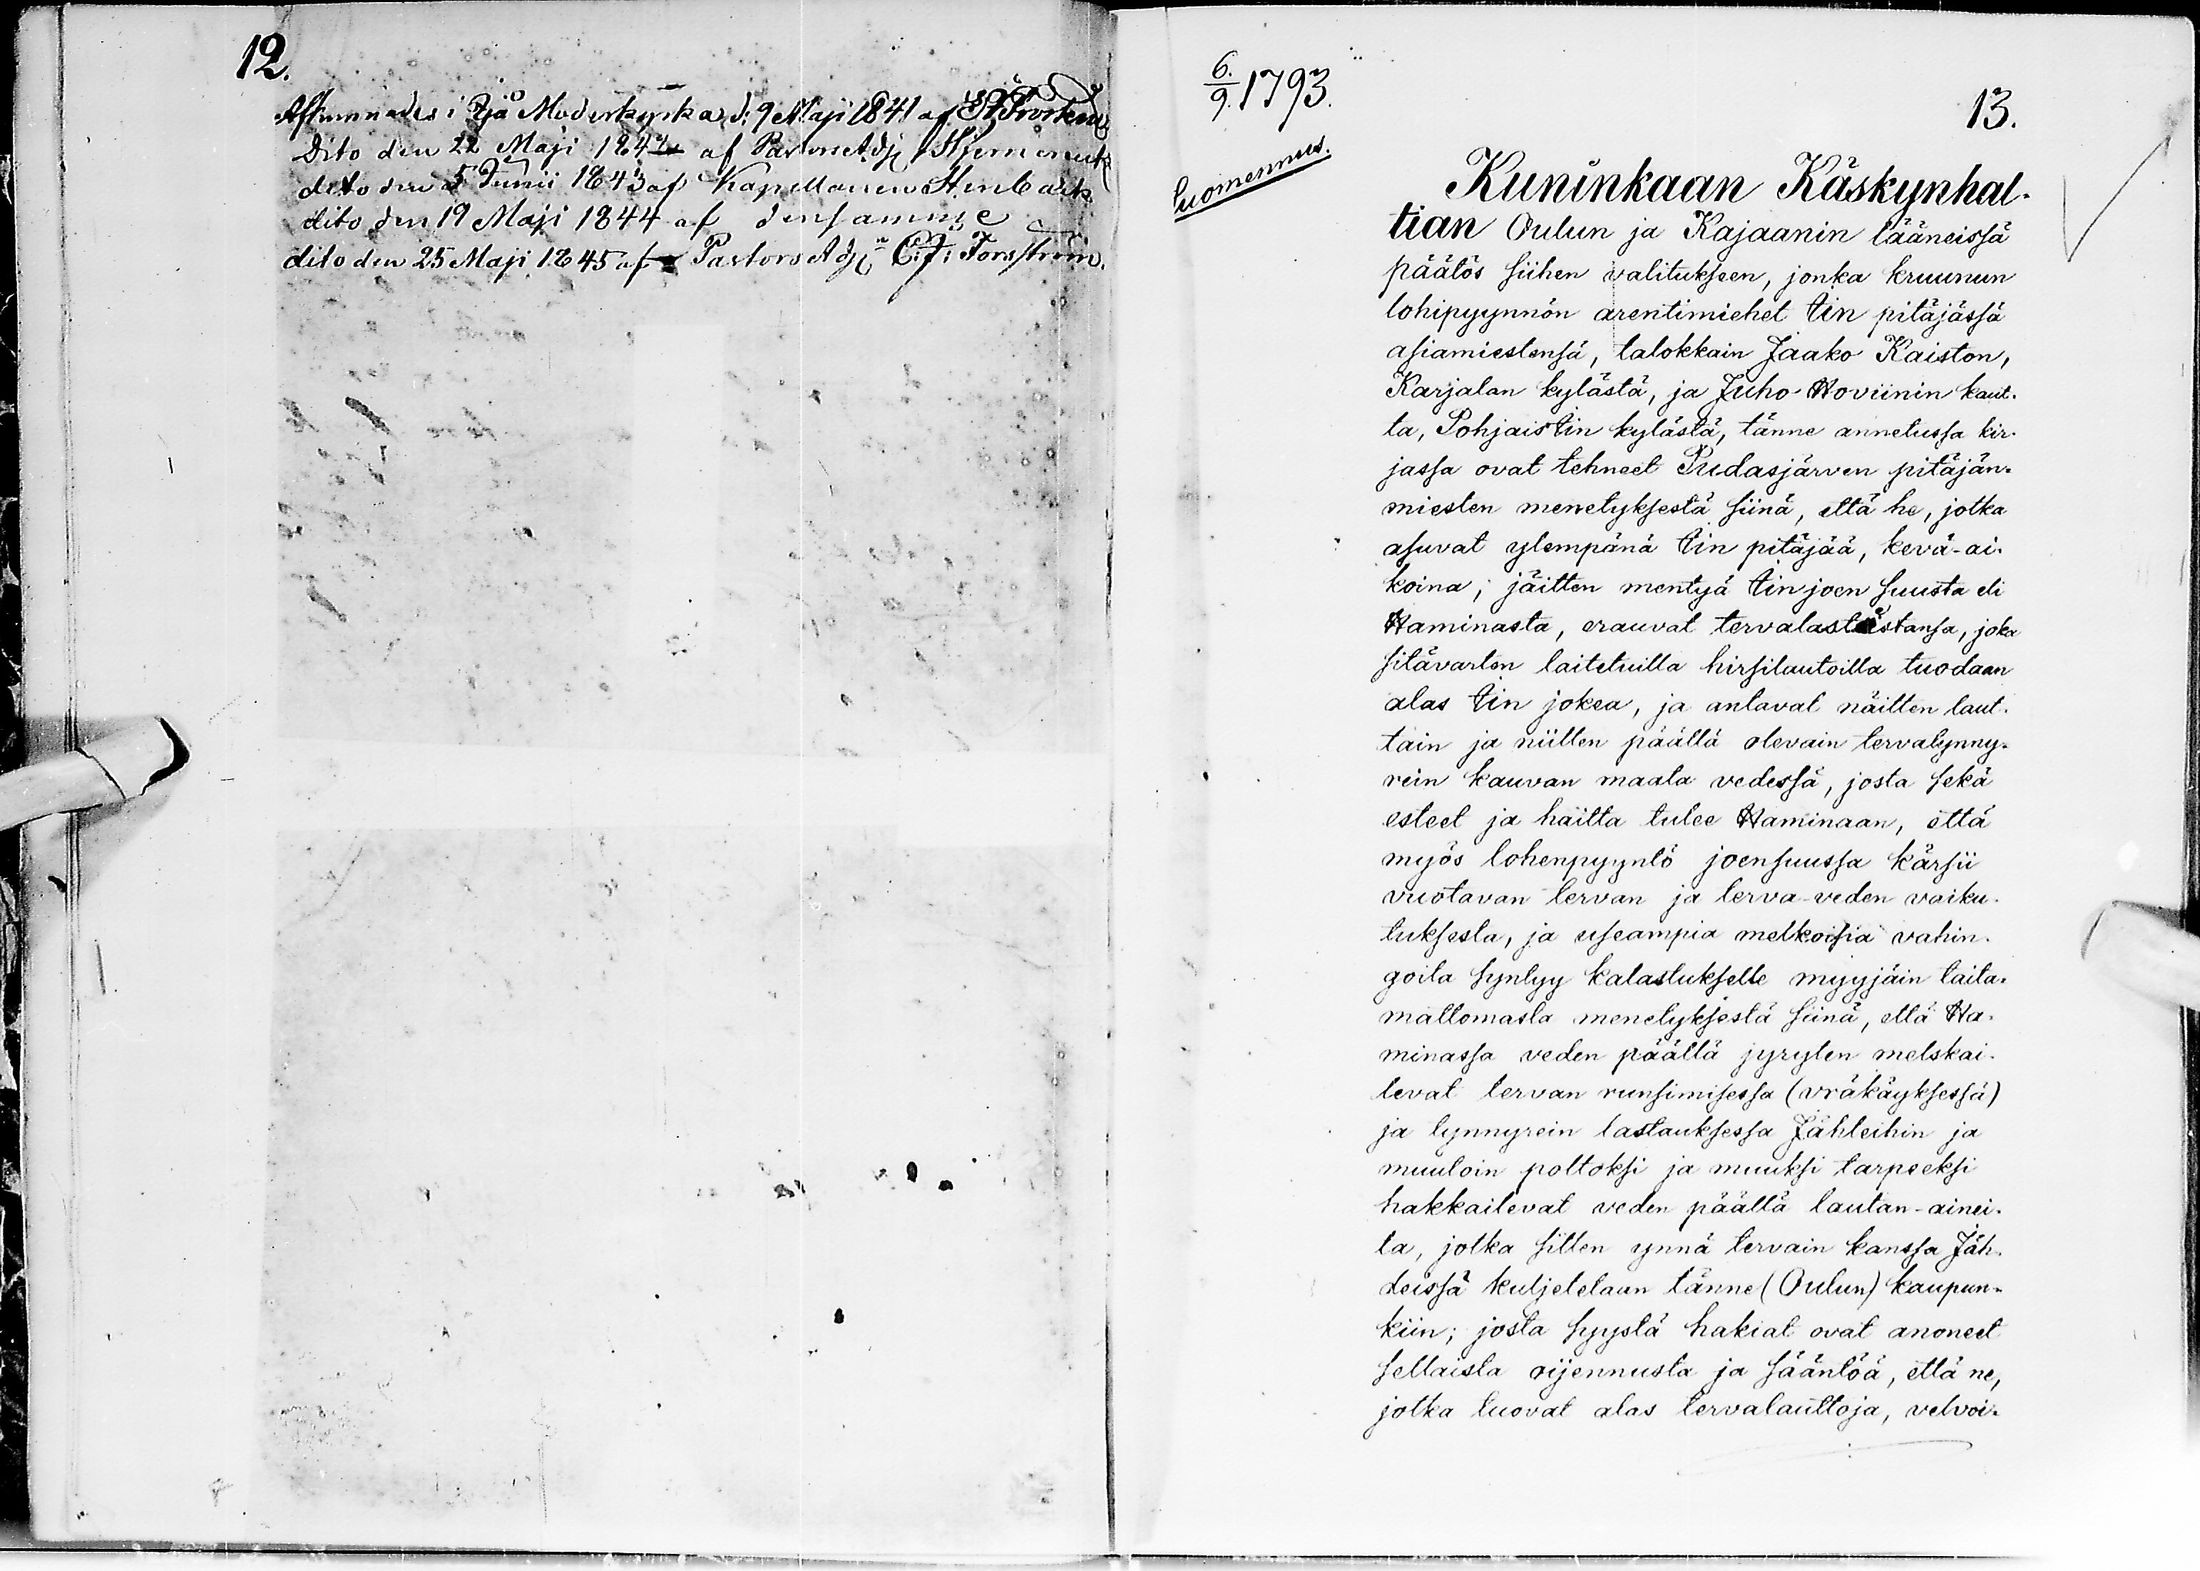 12.
Afkunnades i Ijå Moderkyrka d: 9 Maji 1841 af
Dito den 22 Maji 184 af Pastors Adj
dito den 5 Junii 1843 af Kapellanen Stenbäck
dito den 19 Maji 1844 af densamme
dito den 25 Maji 1845 af Pastors Adj: C: J: Forsström.
6./9. 1793.
Suomennus.
13.
Kuninkaan Käskynhal-
tian Oulun ja Kajaanin lääneissä
päätös siihen valitukseen, jonka kruunun
lohipyynnön arentimiehet Iin pitäjässä
asiamiestensä, talokkain Jaako Kaiston,
Karjalan kylästä, ja Juho Hoviinin kaut-
ta, Pohjais Iin kylästä, tänne annetussa kir-
jassa ovat tehneet Pudasjärven pitäjän-
miesten menetyksestä siinä, että he, jotka
asuvat ylempänä Iin pitäjää, kevä-ai-
koina, jäitten mentyä Iin joen suusta eli
Haminasta, erauvat tervalastistansa, joka
sitävarten laitetuilla hirsilautoilla tuodaan
alas Iin jokea, ja antavat näitten laut-
tain ja niitten päällä olevain tervatynny-
rein kauvan maata vedessä, josta sekä
esteet ja haitta tulee Haminaan, että
myös lohenpyyntö joensuussa kärsii
vuotavan tervan ja terva-veden vaiku-
tuksesta, ja useampia melkoisia vahin-
goita syntyy kalastukselle myyjäin taita-
mattomasta menetyksestä siinä, että Ha-
minassa veden päällä jyryten melskai-
levat tervan runsimisessa (vräkäyksessä)
ja tynnyrein lastauksessa Jähteihin ja
muutoin polttoksi ja muuksi tarpeeksi
hakkailevat veden päällä lautan-ainei-
ta, jotka sitten ynnä tervain kanssa Jäh-
deissä kuljetetaan tänne (Oulun) kaupun-
kiin; josta syystä hakiat ovat anoneet
sellaista oijennusta ja sääntöä, että ne,
jotka tuovat alas tervalauttoja, velvoi-